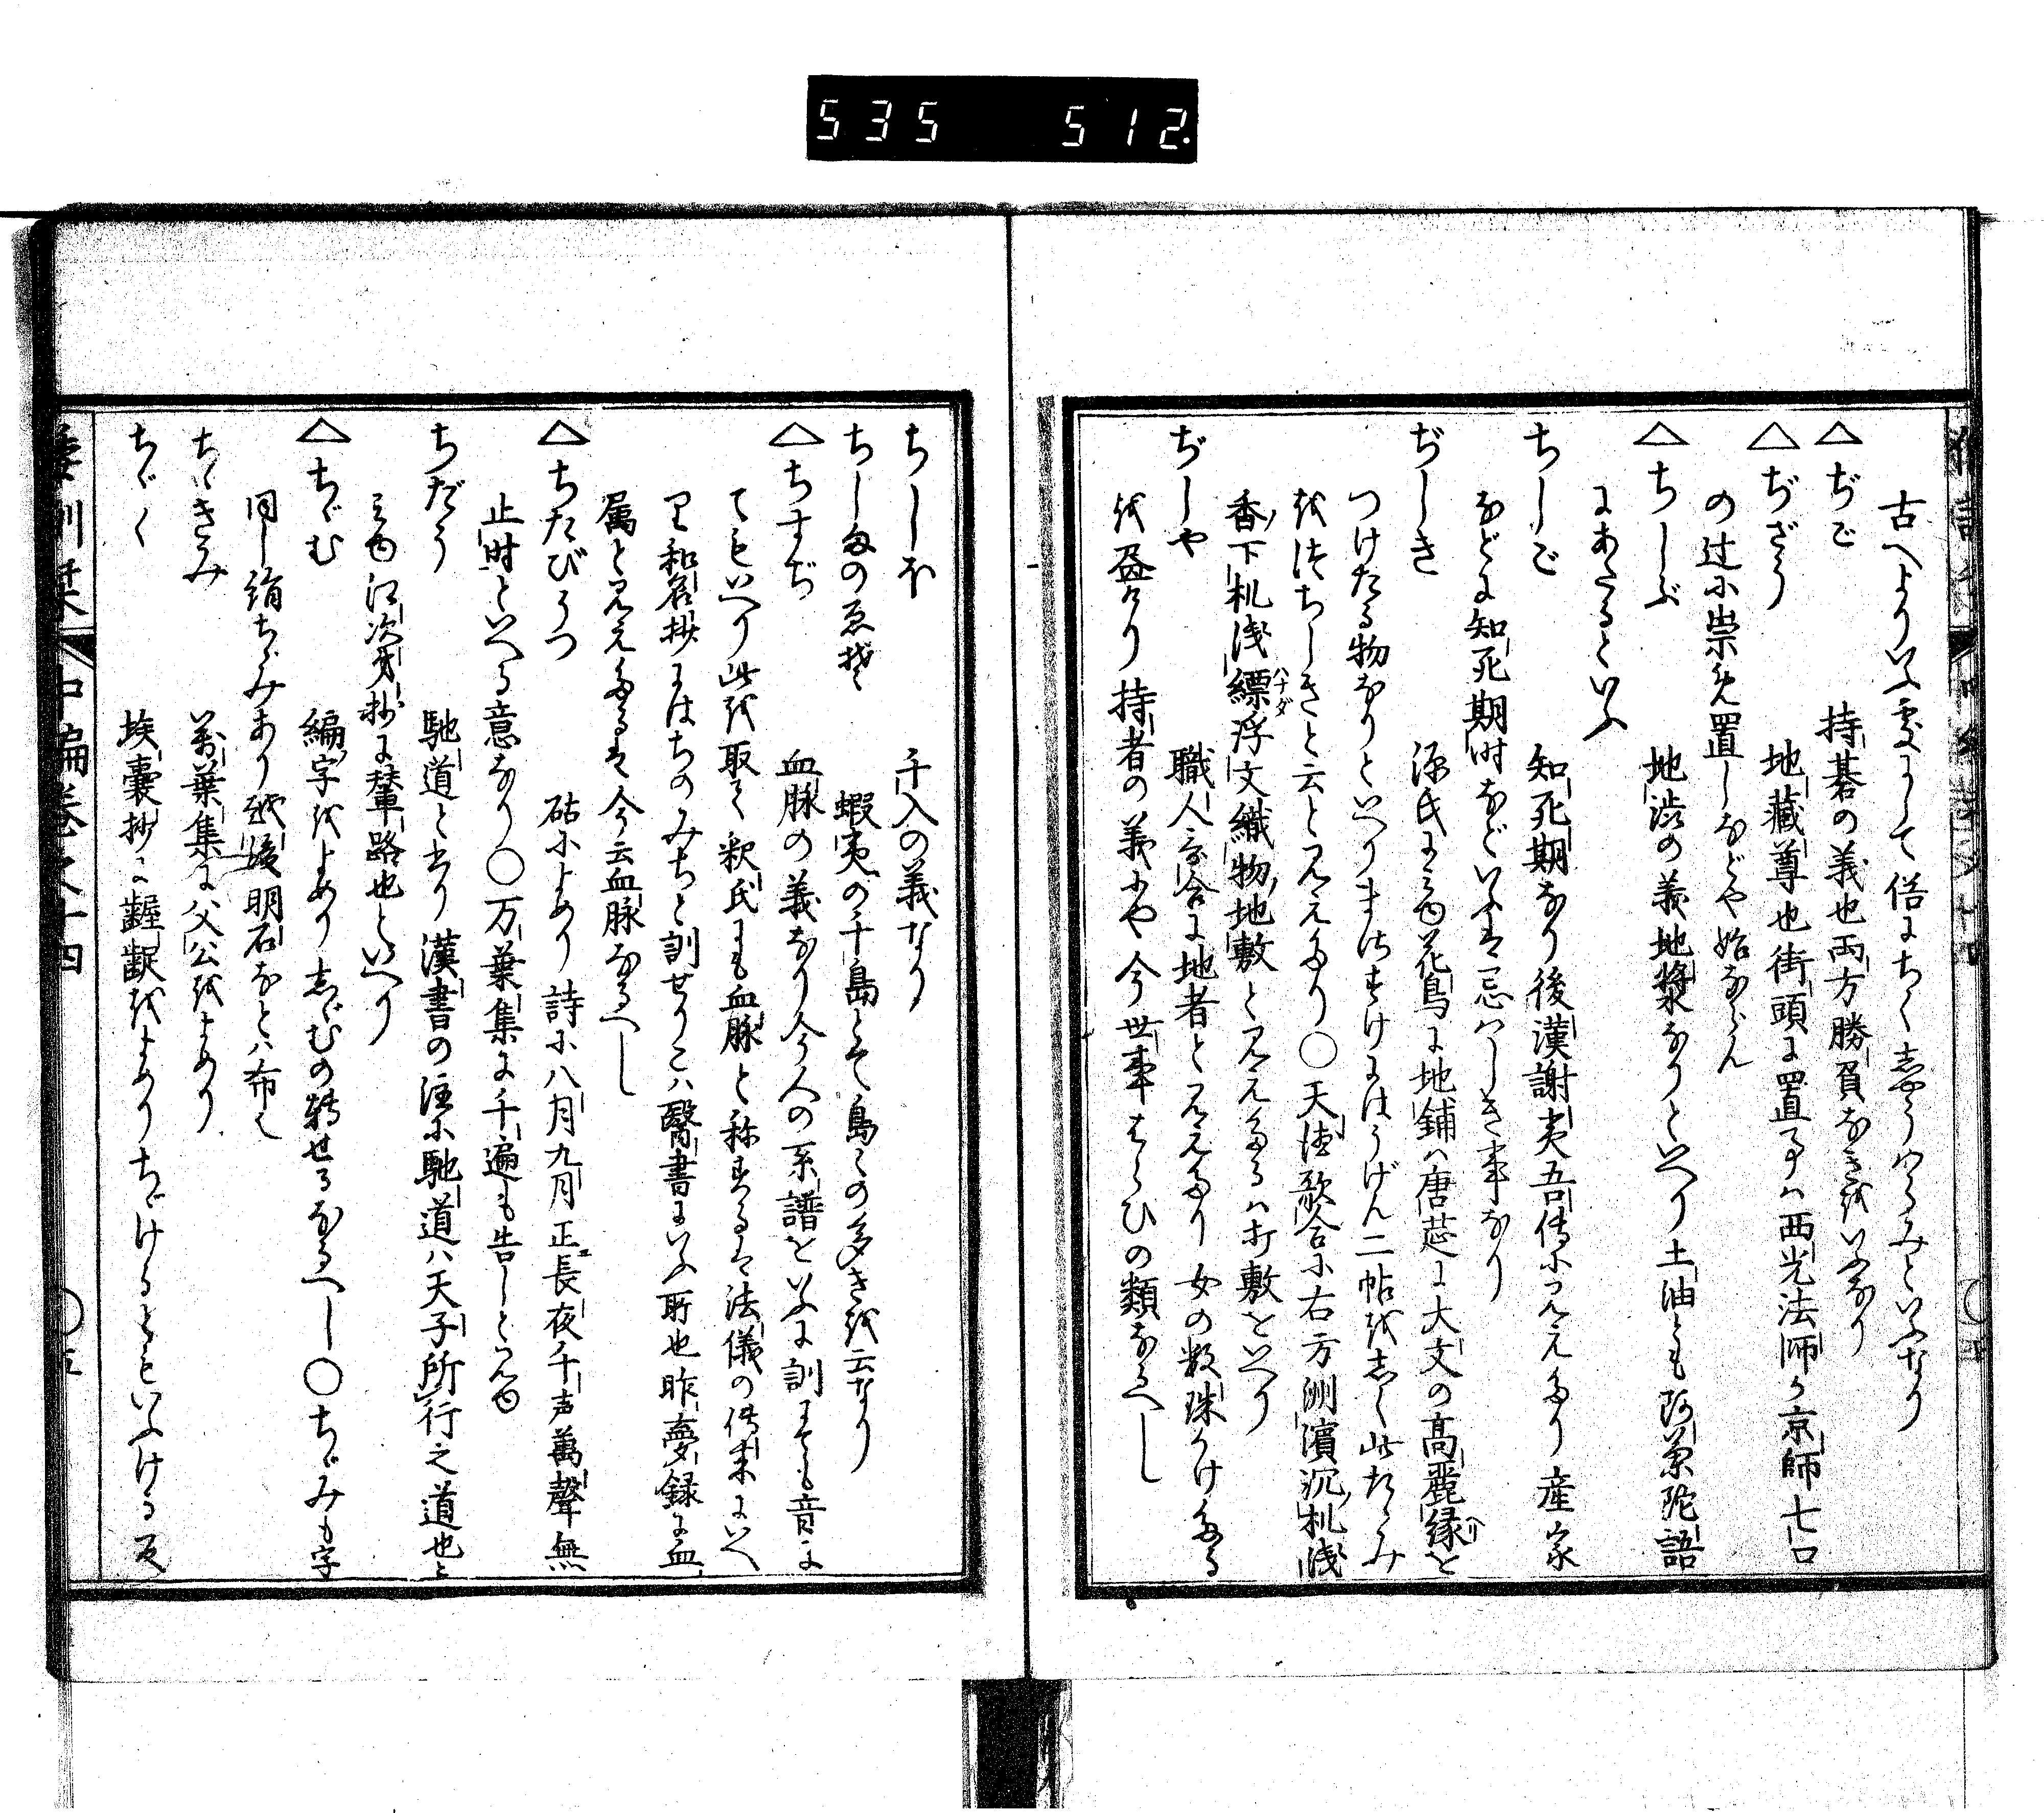 535 512.
古へよりいふ事にて俗にちゝしやうぐるみといふなり
△ぢご 持碁の義也両方勝負なきをいふなり
△ぢざう 地藏尊也街頭に置事は西光法師か京師七口
の辻に崇め置しなどや始ならん
△ちしぶ 地渋の義地漿なりといへり土油とも阿蘭陀語
にあたるといふ
ちしご 知死期なり後漢謝夷吾傳に見えたり産家
などに知死期時などいふは忌はしき事なり
ぢしき 源氏に見ゆ花鳥に地鋪は唐莚に大文の高麗縁を
つけたる物なりといへりまた
うげん二帖をしく此たゝみ
をぢしきと云と見えたり〇天徳歌合に右方洲濱沉机浅
香下机浅縹浮文織物地敷と見えたるは打敷をいへり
ぢしや 職人歌合に地者と見えたり女の数珠かけたる
を画けり持者の義にや今世事はらひの類なるへし
ちしほ 千入の義なり
ちしまのゑぞ 蝦夷の千島とて島々の多きを云なり
△ちすぢ 血脉の義なり今人の系譜をいふに訓にても音に
てもいへり此を取て釈氏にも血脉と称するは法儀の傳来にいへ
り和名抄にはちのみちと訓せりこは醫書にいふ所也昨夢録に血
属と見えたるは今云血脉なるへし
△ちたびうつ 砧によめり詩に八月九月正長夜千声萬聲無
止時といへる意なり〇万葉集に千遍も告しと見ゆ
ちだう 馳道と書り漢書の注に馳道ハ天子所行之道也と
見ゆ江次第抄に輦路也といへり
△ちゞむ 縮字をよめりしゞむの轉せるなるへし〇ちゞみも字
同し絹ちゞみあり越後明石なとハ布也
ちゝきみ 萬葉集に父公をよめり
ちゞく 埃囊抄に齷齪をよめりちゞけるともいふける反
倭訓栞 中編巻之十四 〇五